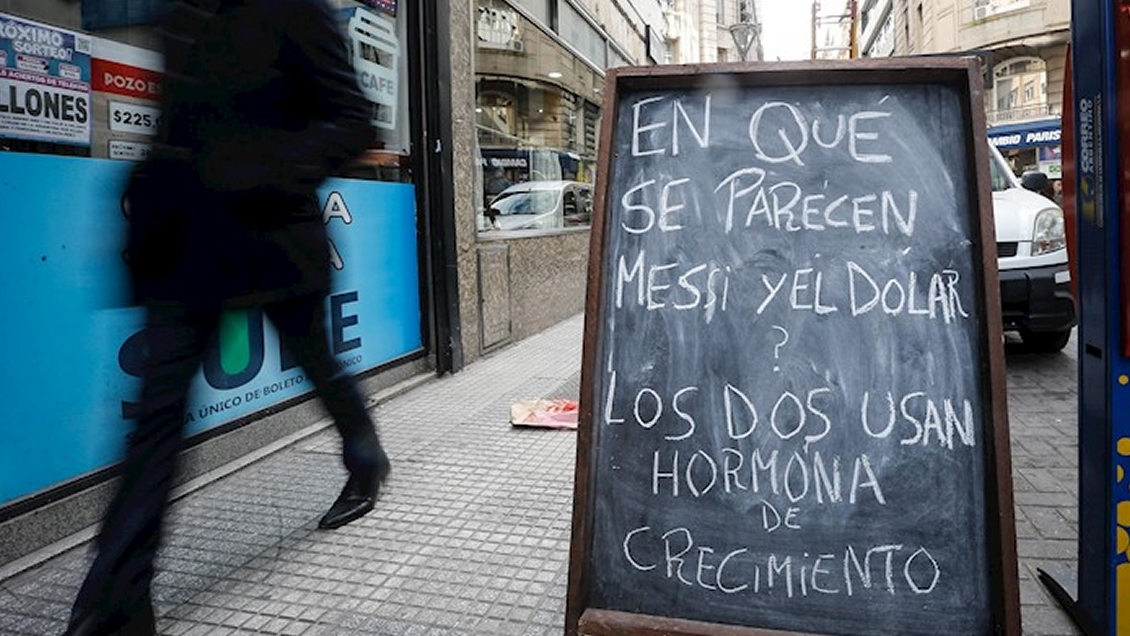 PRÓXIMO
SORTEO
LLONES
POZO ES
$225.
CAFE
SUBE
ÚNICO DE BOLETO
CAMBIO PARIS
CORREO
ARGENTINO
EN QUÉ
SE PARECEN
MESSI Y EL DOLAR
?
LOS DOS USAN
HORMONA
DE
CRECIMIENTO